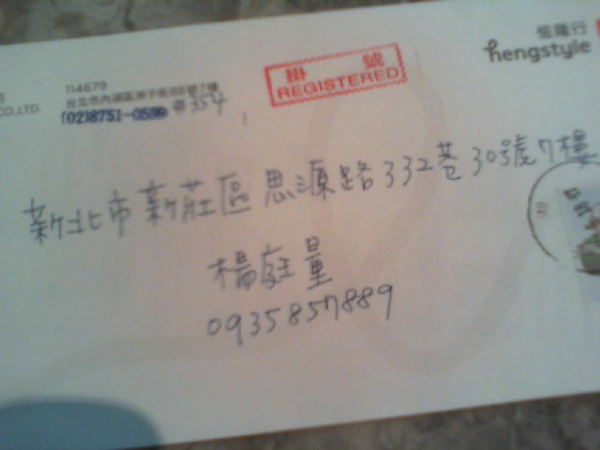 恆隆行
hengstyle
CO.,LTD.
114679
台北市內湖區洲子街88號7樓
(02)8751-0599 #354
掛號
REGISTERED
新北市新莊區思源路332巷30號7樓
楊庭量
0935857889